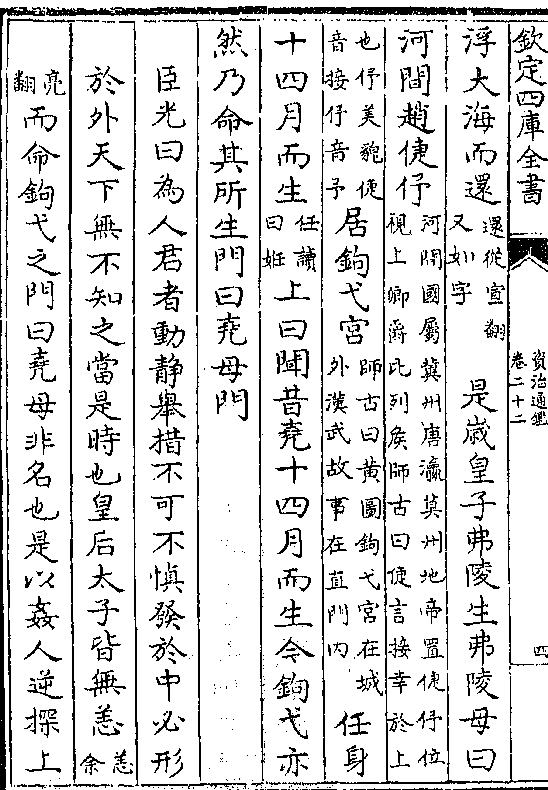 欽定四庫全書 資治通鑑卷二十二 四
浮大海而還還從宣翻又如字是歲皇子弗陵生弗陵母曰
河間趙倢伃河間國屬冀州唐瀛莫州地帝置倢伃位視上卿爵比列侯師古曰倢言接幸於上
也伃美貌倢音接伃音予居鉤弋宮師古曰黃圖鉤弋宮在城外漢武故事在直門内任身
十四月而生任讀曰姙上曰聞昔堯十四月而生今鉤弋亦
然乃命其所生門曰堯母門
臣光曰為人君者動靜舉措不可不慎發於中必形
於外天下無不知之當是時也皇后太子皆無恙恙余
亮翻而命鉤弋之門曰堯母非名也是以姦人逆探上